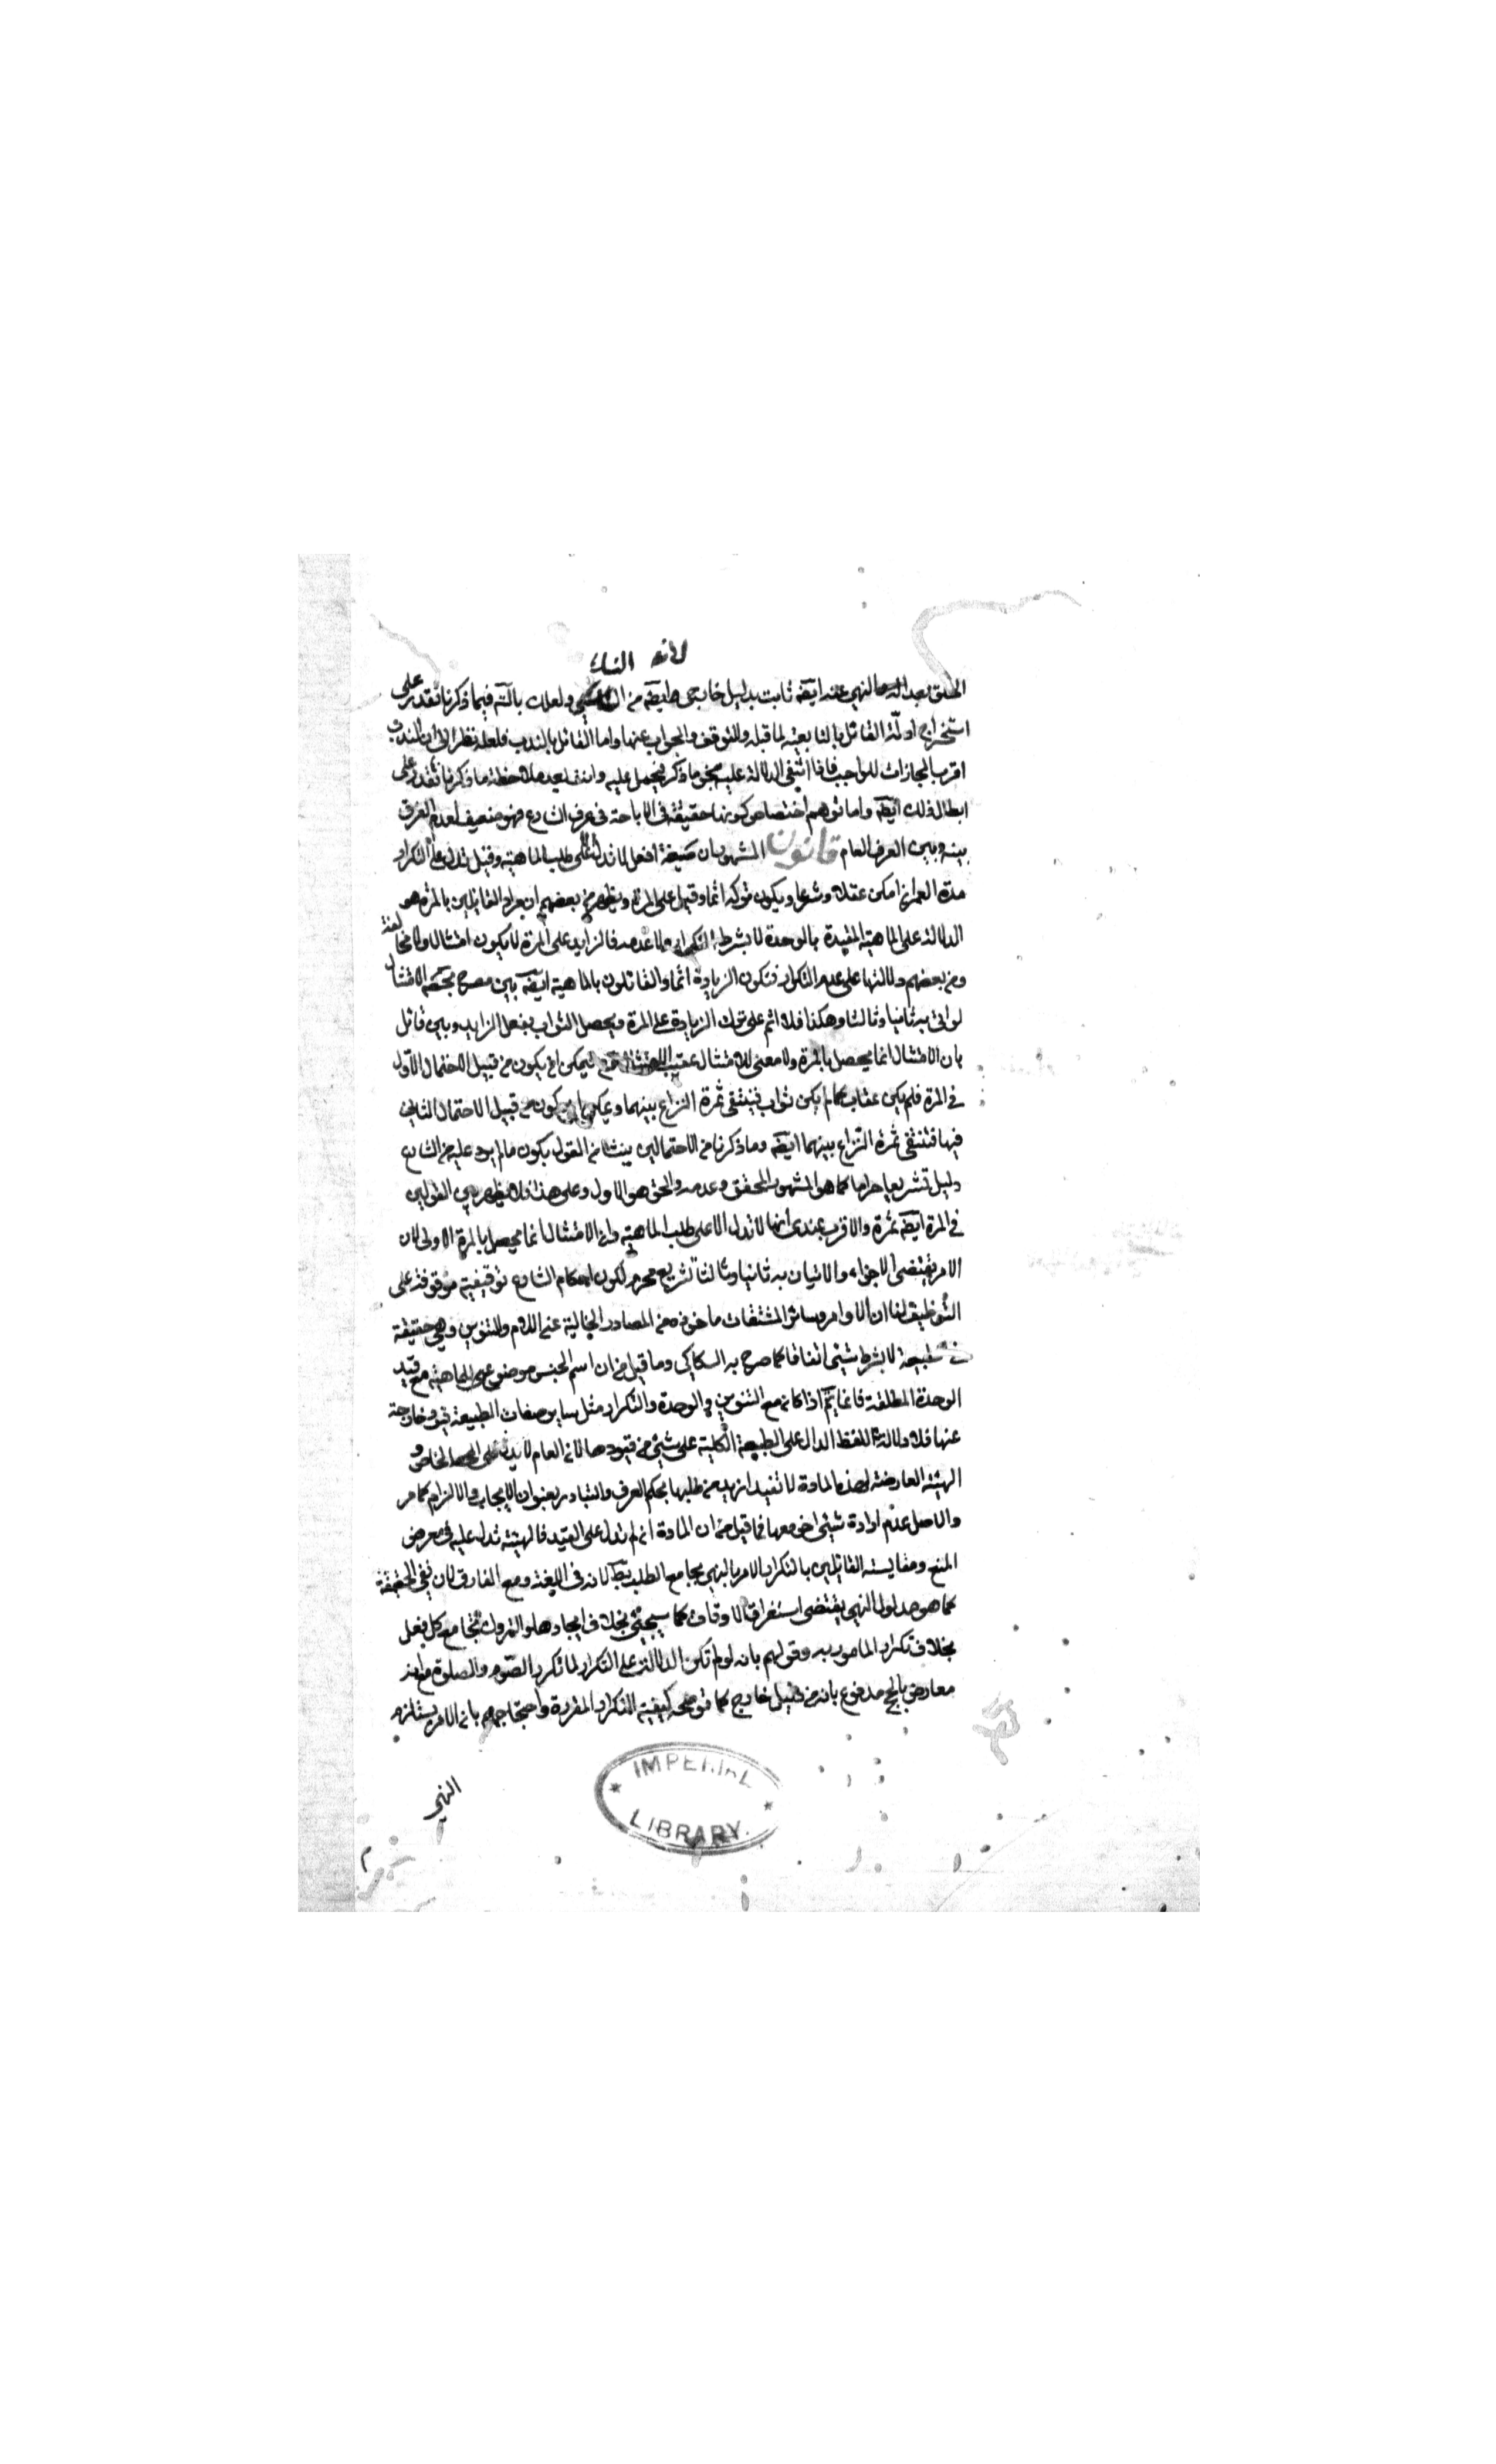 لانه النسك
الحلق بعد النهي عنه ايضه ثابت بدليل خارجي ولعلك بالتامل فيما ذكرنا تقدر على
استخراج ادلة القائل بالتابعية لما قبله وللتوقف والجواب عنها واما القائل بالندب فلعله نظر الى ان الندب
اقرب المجازات للواجب فاذا انتفى الدلالة عليه بنحو ما ذكر فيحمل عليه وانت بعد ملاحظة ما ذكرنا تقدر على
ابطال ذلك ايضه واما توهم اختصاص كونها حقيقة في الاباحة في عرف الشارع فهو ضعيف لعدم الفرق
بينه وبين العرف العام قانون المشهور ان صيغة افعل لا تدل الا على طلب الماهية وقيل تدل على التكرار
مدة العمر ان امكن عقلا وشرعا ويكون تركه اثما وقيل على المرة ويظهر من بعضهم ان مراد القائلين بالمرة هو
الدلالة على الماهية المقيدة بالوحدة لا بشرط التكرار ولا عدمه فالزايد على المرة لا يكون امتثالا ولا مخالفة
ومن بعضهم دلالتها على عدم التكرار فتكون الزيادة اثما والقائلون بالماهية ايضه بين مصرح بتحقق الامتثال
لو اتى به ثانيا وثالثا وهكذا فلا اثم على ترك الزيادة على المرة ويحصل الثواب بفعل الزايد وبين قائل
بان الامتثال انما يحصل بالمرة ولا معنى للامتثال عقيب الامتثال فيمكن ان يكون من قبيل الاحتمال الاول
في المرة فلم يكن عقاب كما لم يكن ثواب فينتفي ثمرة النزاع بينهما ويمكن ان يكون من قبيل الاحتمال الثاني
فيها فتنتفي ثمرة النزاع بينهما ايضه وما ذكرنا من الاحتمالين ينشا من القول بكون ما لم يرد عليه من الشارع
دليل تشريعا حراما كما هو المشهور المحقق وعدمه والحق هو الاول وعلى هذا فلا يظهر بين القولين
في المرة ايضه ثمرة والاقرب عندي انها لا تدل الا على طلب الماهية وان الامتثال انما يحصل بالمرة الاولى لان
الامر يقتضي الاجزاء والاتيان به ثانيا وثالثا تشريع محرم لكون احكام الشارع توقيفية موقوفة على
التوظيف لنا ان الاوامر وسائر المشتقات ماخوذة من المصادر الخالية عن اللام والتنوين وهي حقيقة
في الطبيعة لا بشرط شيئ اتفاقا كما صرح به السكاكي وما قيل من ان اسم الجنس موضوع على الماهية مع قيد
الوحدة المطلقة فانما يتم اذا كان مع التنوين والوحدة والتكرار مثل ساير صفات الطبيعة قيود خارجة
عنها فلا دلالة للفظ الدال على الطبيعة الكلية على شيئ من قيودها لان العام لا يدل على الخاص و
الهيئة العارضة لهذه المادة لا تفيد ازيد من طلبها بحكم العرف والتبادر بعنوان الايجاب والالزام كما مر
والاصل عدم ارادة شيئ اخر معها فما قيل من ان المادة ان لم تدل على القيد فالهيئة تدل عليه في معرض
المنع ومقايسة القائلين بالتكرار الامر بالنهي بجامع الطلب بط لانه في اللغة ومع الفارق لان نفي الحقيقة
كما هو مدلول النهي يقتضي استغراق الاوقات كما سيجئ بخلاف ايجادها والتروك تجامع كل فعل
بخلاف تكرار المامور به وقولهم بانه لو لم تكن الدلالة على التكرار لما تكرر الصوم والصلوة مع انه
معارض بالحج مدفوع بانه من دليل خارج كما توضحه كيفية التكرار المقررة واحتجاجهم بان الامر يستلزم
النهي
IMPERIAL
LIBRARY.